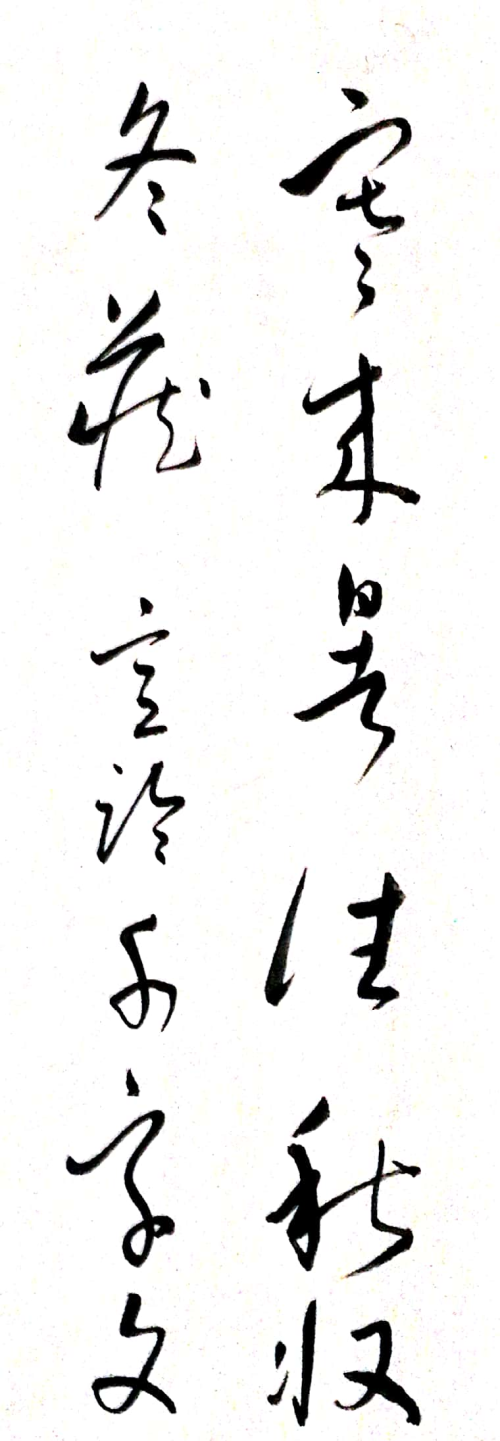 寒来暑往秋收
冬藏 千字文